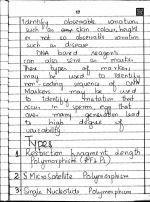 Identify observable variation
such as skin colour, height
or not so observable variation
such as disease
DNA based reagents
can also serve as marker
These types of markers
may be used to identify
non-coding sequence of DNA
Markers may be used
to identify mutation that
occur in sperm, egg that
over many generation lead
to high degree of
variability
Types
1 Restriction Fragment length
Polymorphism (RFLPs)
2 Microsatellite Polymorphism
3 Single Nucleotide Polymorphism